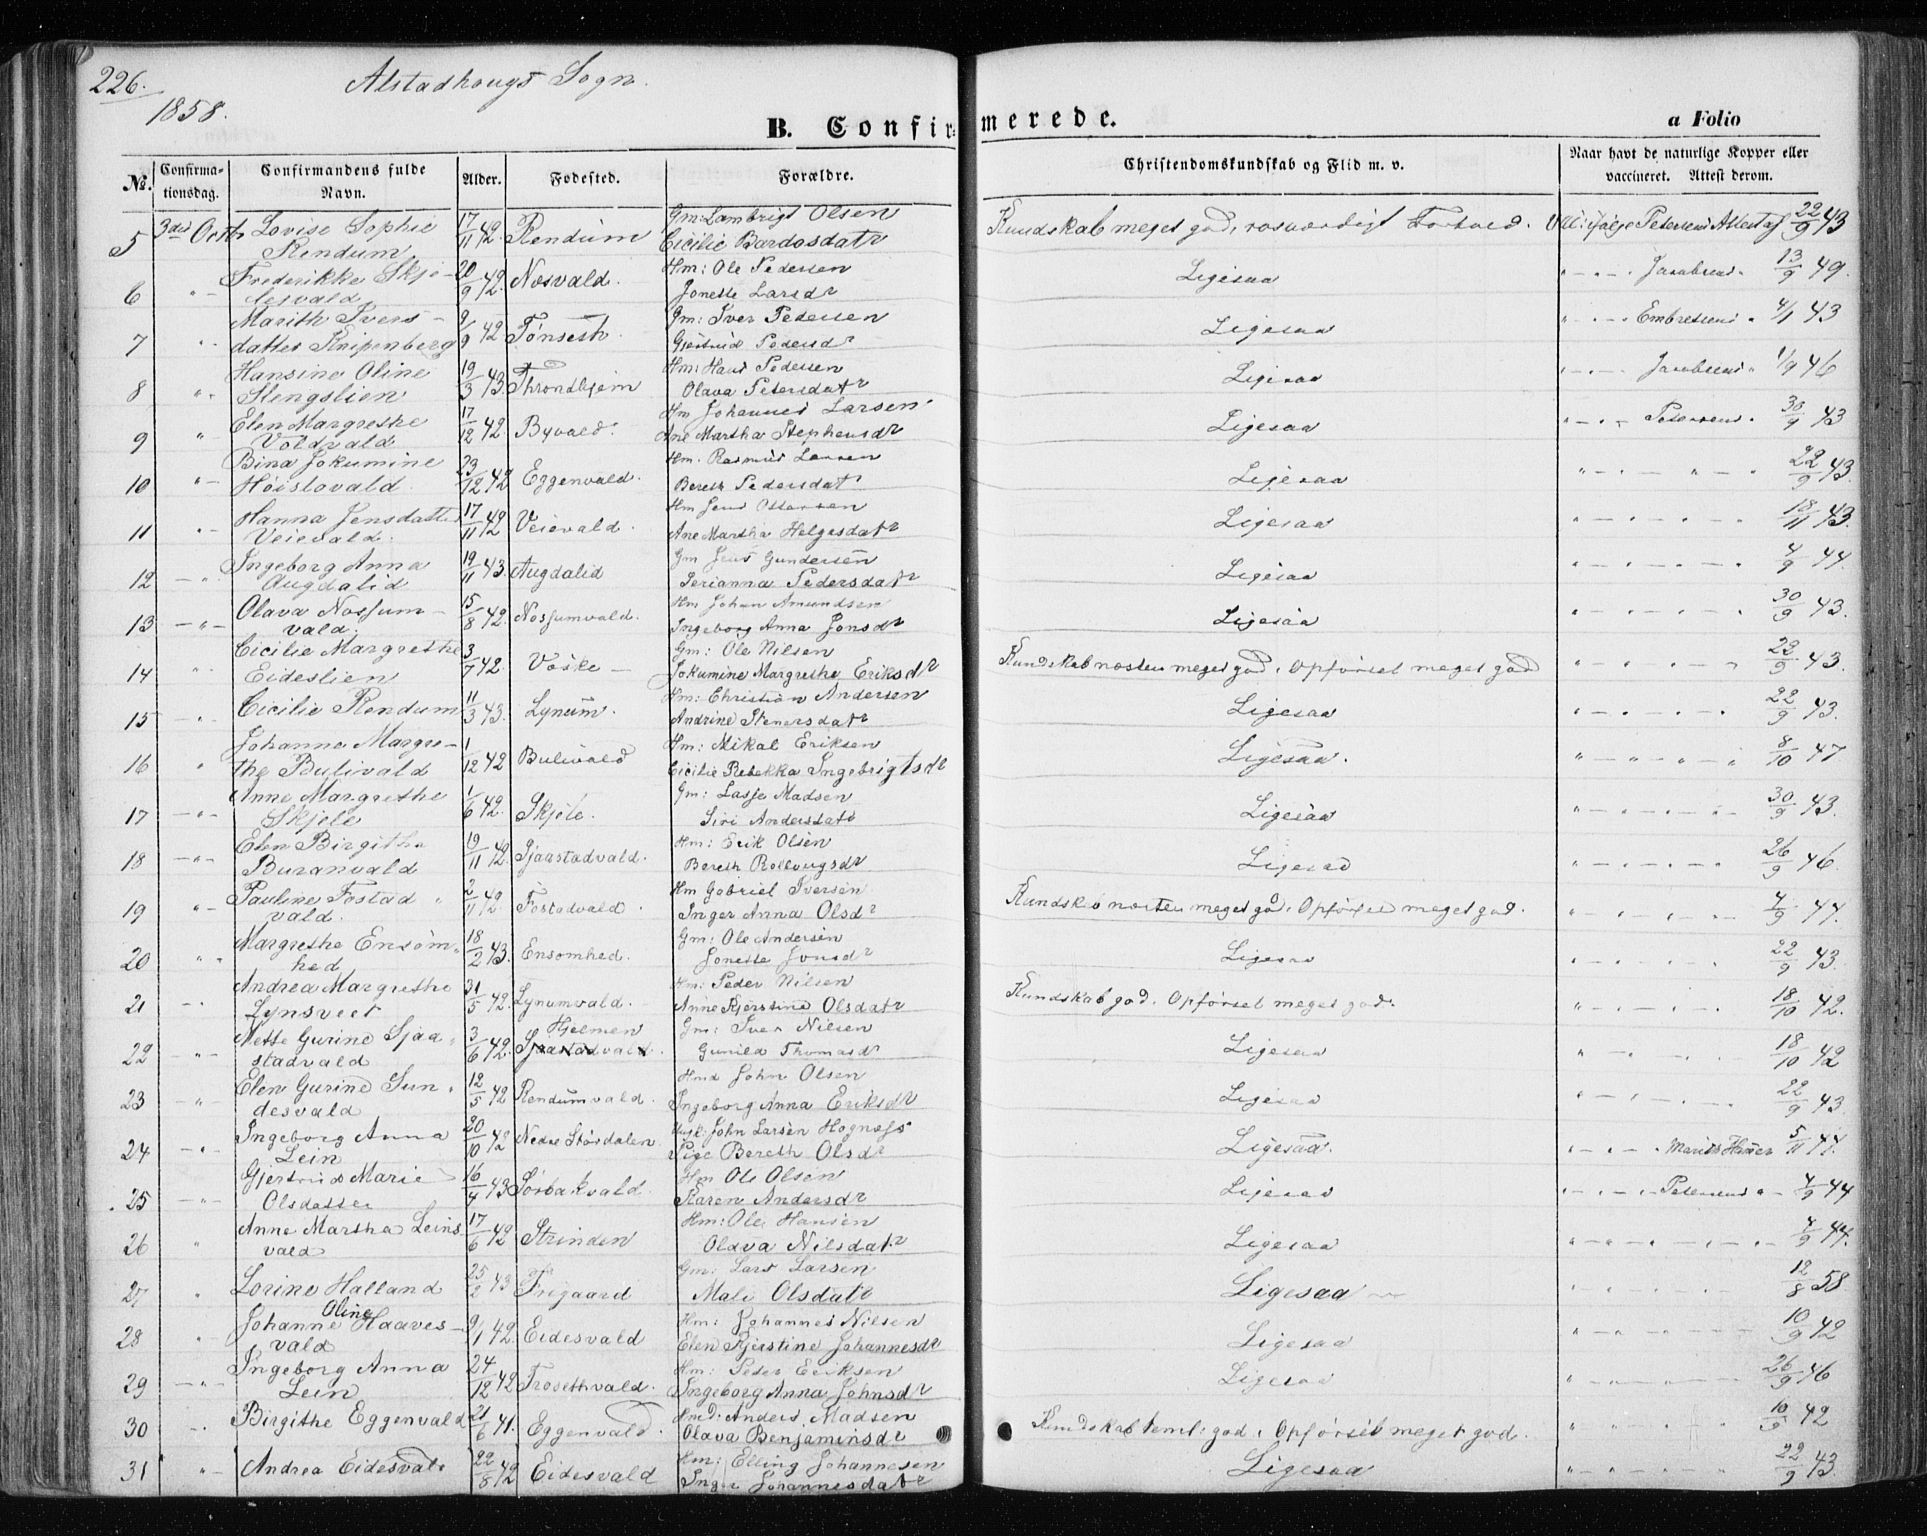 226.
Alstadhougs Sogn.
1858.
B. Confirmerede.
a Folio
No.
Confirmationsdag.
Confirmandens fulde Navn.
Alder.
Fødested.
Forældre.
Christendomskundskab og Flid m. v.
Naar havt de naturlige Kopper eller vaccineret. Attest derom.
5 3die Octbr Lovise Sophie Rendum 17/11 42. Rendum Gm: Lambrigt Olsen Cicilie Bardosdatr Kundskab meget god, rosværdigt Forhold. Vacc: ifølge Petersens Attest af 22/9 43
6 " Frederikke Skjelesvald 20/9 42. Nosvald. Hm: Ole Pedersen Jonette Larsdr Ligesaa " - " - Jacobsens " 13/9 49.
7 " Marith Iversdatter Knipenberg 9/9 42 Tønseth. Gm: Iver Pedersen Gjertrud Pedersdr Ligesaa " - " - Embretsens " 4/1 43
8 " Hansine Oline Stengslien 19/3 43 Throndhjem Hm: Hans Pedersen Olava Petersdatr Ligesaa " - " - Jacobsens " 1/9 46
9 " Elen Margrethe Voldvald 17/12 42 Byvald. Hm Johannes Larsen Ane Martha Stephensdr Ligesaa " - " - Petersens " 30/9 43
10 " Bina Jokumine Høislovald. 23/12 42 Eggenvald. Hm. Rasmus Larsen Bereth Pedersdatr Ligesaa " - " - " - " 22/9 43.
11 " Hanna Jensdatter Veievald. 17/11 42 Veievald. Hm Jens Ottersen Ane Martha Helgesdatr Ligesaa " - " - " - " 18/11 43.
12 - " Ingeborg Anna Augdalid 19/11 43. Augdalid Gm Jens Gundersen Perianna Pedersdatr Ligesaa " - " - " - " 4/9 44.
13 - " - Olava Nossumvald. 15/8 42. Nossumvald. Hm Johan Amundsen Ingeborg Anna Jonsdr Ligesaa " - " - " - " 30/9 43.
14 " Cicilie Margrethe Eideslien 3/7 42. Voske Gm: Ole Nilsen Jokumine Margrethe Eriksdr Kundskab nosten meget god. Opførsel meget god " - " - " - " 23/9 43.
15 - " Cicilie Rendum 11/3 43. Lynum. Hm: Christian Andersen Andrine Stenersdatr Ligesaa " - " - " - " 22/9 43.
16 " Johanne Margrethe Bulivald 1/12 42 Bulivald Hm: Mikal Eriksen Cicilie Rebekka Ingebrigtsdr Ligesaa. " - " - " - " 8/10 47
17 - " - Anne Margrethe Skjele 1/6 42. Skjele. Gm: Lasse Madsen Siri Andersdatr Ligesaa " - " - " - " 30/9 43.
18 - " - Elen Birgitha Buranvald 19/11 42. Sjaastadvald. Hm: Erik Olsen Bereth Rollaugsdr Ligesaa " - " - " - " 26/9 46.
19 " - Pauline Fostadvald. 2/11 42. Fostadvald. Hm Gabriel Iversen Inger Anna Olsdr Kundskb nosten meget god, Opførsel meget god. " - " - " - " 4/9 44.
20 " " Margrethe Ensomhed 18/2 43. Ensomhed. Gm: Ole Andersen Jonette Jonsdr Ligesaa " - " - " - " 22/9 43.
21 - " Andrea Margrethe Lynsveet 31/5 42. Lynumvald. Hm: Peder Nilsen Anne Kjerstine Olsdatr Kundskab god. Opførsel meget god. " - " - " - " 18/10 42.
22 - " - Mette Gurine Sjaastadvald 3/6 42. Hjelmen Sjaastadvald. Gm: Iver Nilsen Gunild Thomasdr Ligesaa " - " - " - " 18/10 42
23 - " - Elen Gurine Sundesvald 12/5 42 Rendumvald. Hmd John Olsen Ingeborg Anna Eriksdr Ligesaa " - " - " - " 22/9 43.
24 - " - Ingeborg Anna Lein 20/10 42 Nedre Størdalen. Ungk: John Larsen Hognass Pige Bereth Olsdr Ligesaa. " - " - Marits Hauer 5/11 44.
25 - " - Gjertrud Marie Olsdatter 16/4 43 Sørbakvald. Hm Ole Olsen Karen Andersdr Ligesaa " - " - Petersens " 4/9 44
26 " Anne Martha Leinsvald 17/6 42 Strinden Hm: Ole Hansen Olava Nilsdatr Ligesaa " - " - " - " 4/9 44.
27 " Lorine Halland 25/2 43 Frigaard Gm: Lars Larsen Mali Olsdatr Ligesaa " " " " 12/8 58
28 " Johanne Oline Haavesvald 9/1 42. Eidesvald Hm: Johannes Nilsen Elen Kjerstine Johannesdr Ligesaa " - " - " - " 10/9 42
29 - " - Ingeborg Anna Lein 24/12 42 Trosethvald. Hm: Peder Eriksen Ingeborg Anna Johnsdr Ligesaa " - " - " - " 26/9 46
30 " Birgithe Eggenvald 21/6 41. Eggenvald. Hmd: Anders Madsen Olava Benjaminsdr Kundskab teml: god, Opførsel meget god. " " " " 10/9 42
31 " Andrea Eidesvald 22/8 42 Eidesvald Hm: Elling Johannesen Inger Johannesdatr Ligesaa " - " - " - " 22/9 43.